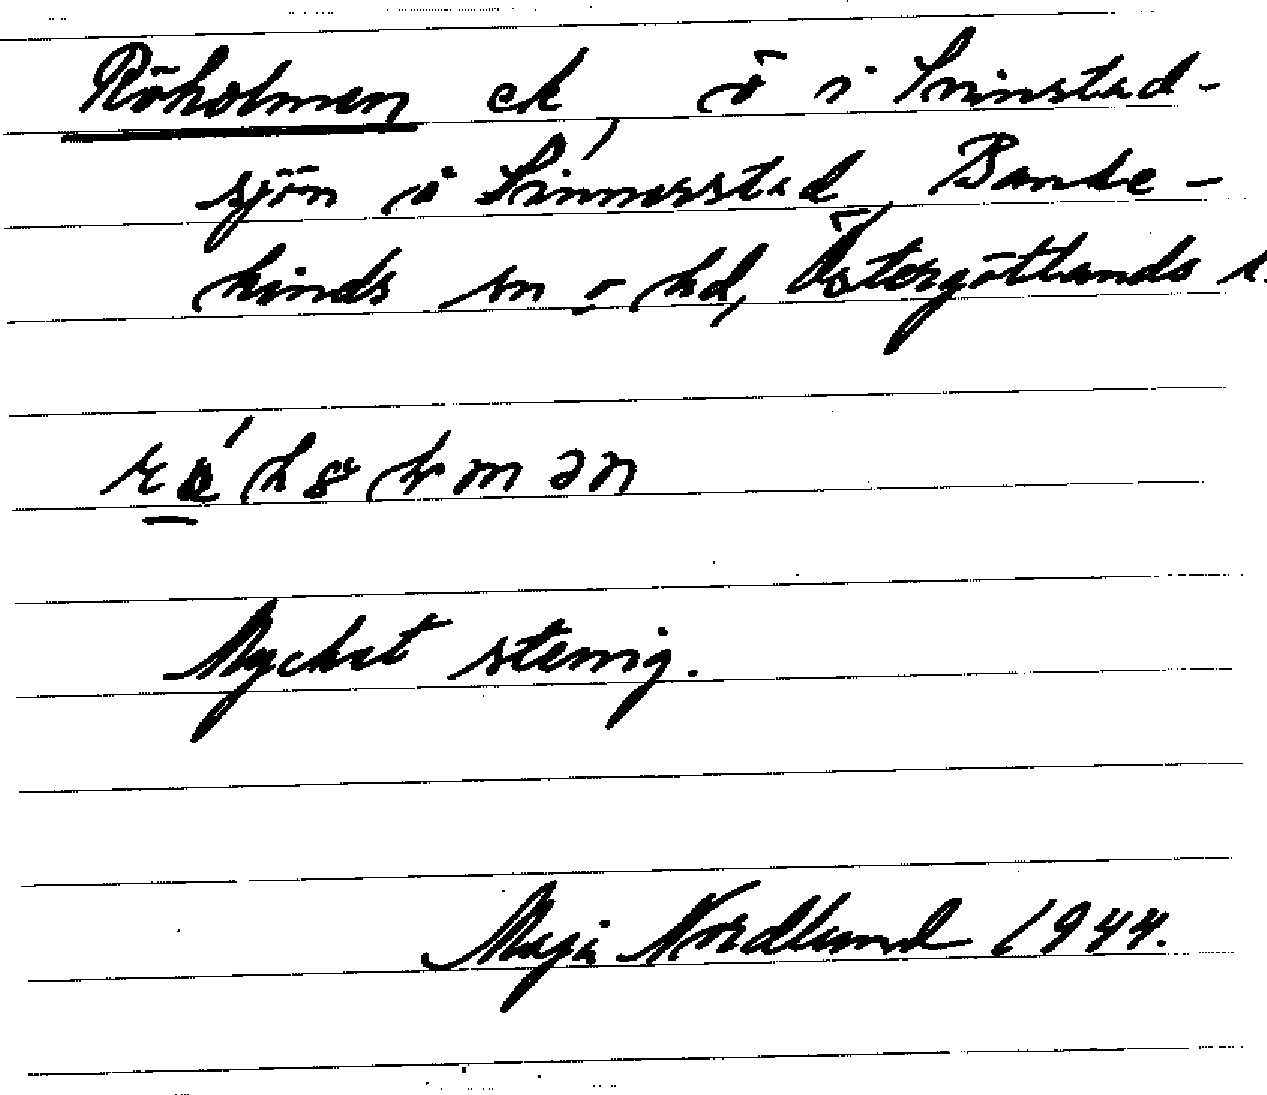 Röholmen ek ö i Svinstad-
sjön å Svinnerstad, Banke-
kinds sn o hd, Östergötlands l.
Mycket stenig.
Maja Nordlund 1944.